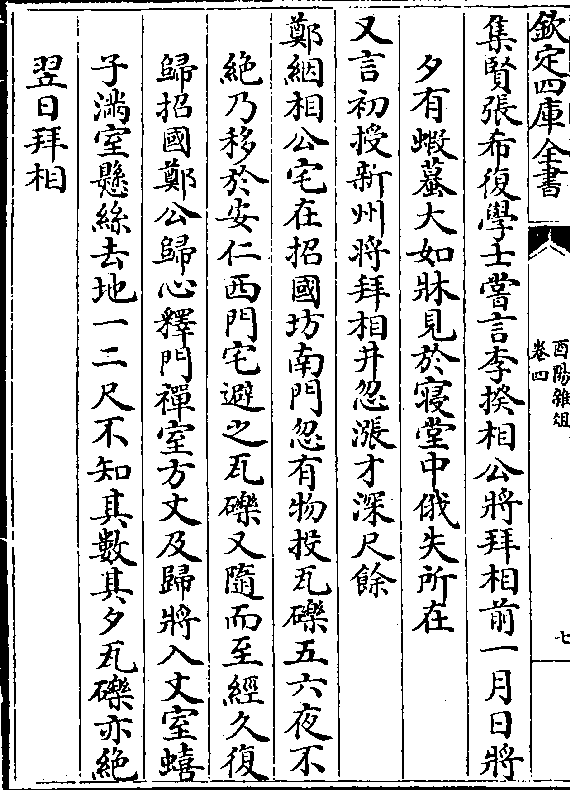 欽定四庫全書
酉陽雜俎
卷四
七
集賢張希復學士嘗言李揆相公將拜相前一月日將
夕有蝦蟇大如牀見於寢堂中俄失所在
又言初授新州將拜相井忽漲才深尺餘
鄭絪相公宅在招國坊南門忽有物投瓦礫五六夜不
絶乃移於安仁西門宅避之瓦礫又隨而至經久復
歸招國鄭公歸心釋門禪室方丈及歸將入丈室蟢
子滿室懸絲去地一二尺不知其數其夕瓦礫亦絶
翌日拜相